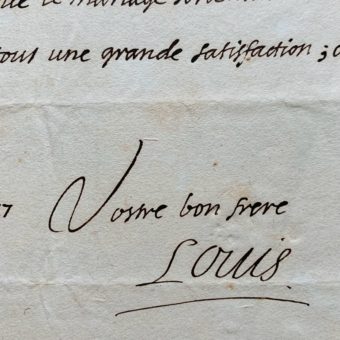 le mariage
tous une grande satisfaction;
Vostre bon frere
Louis.